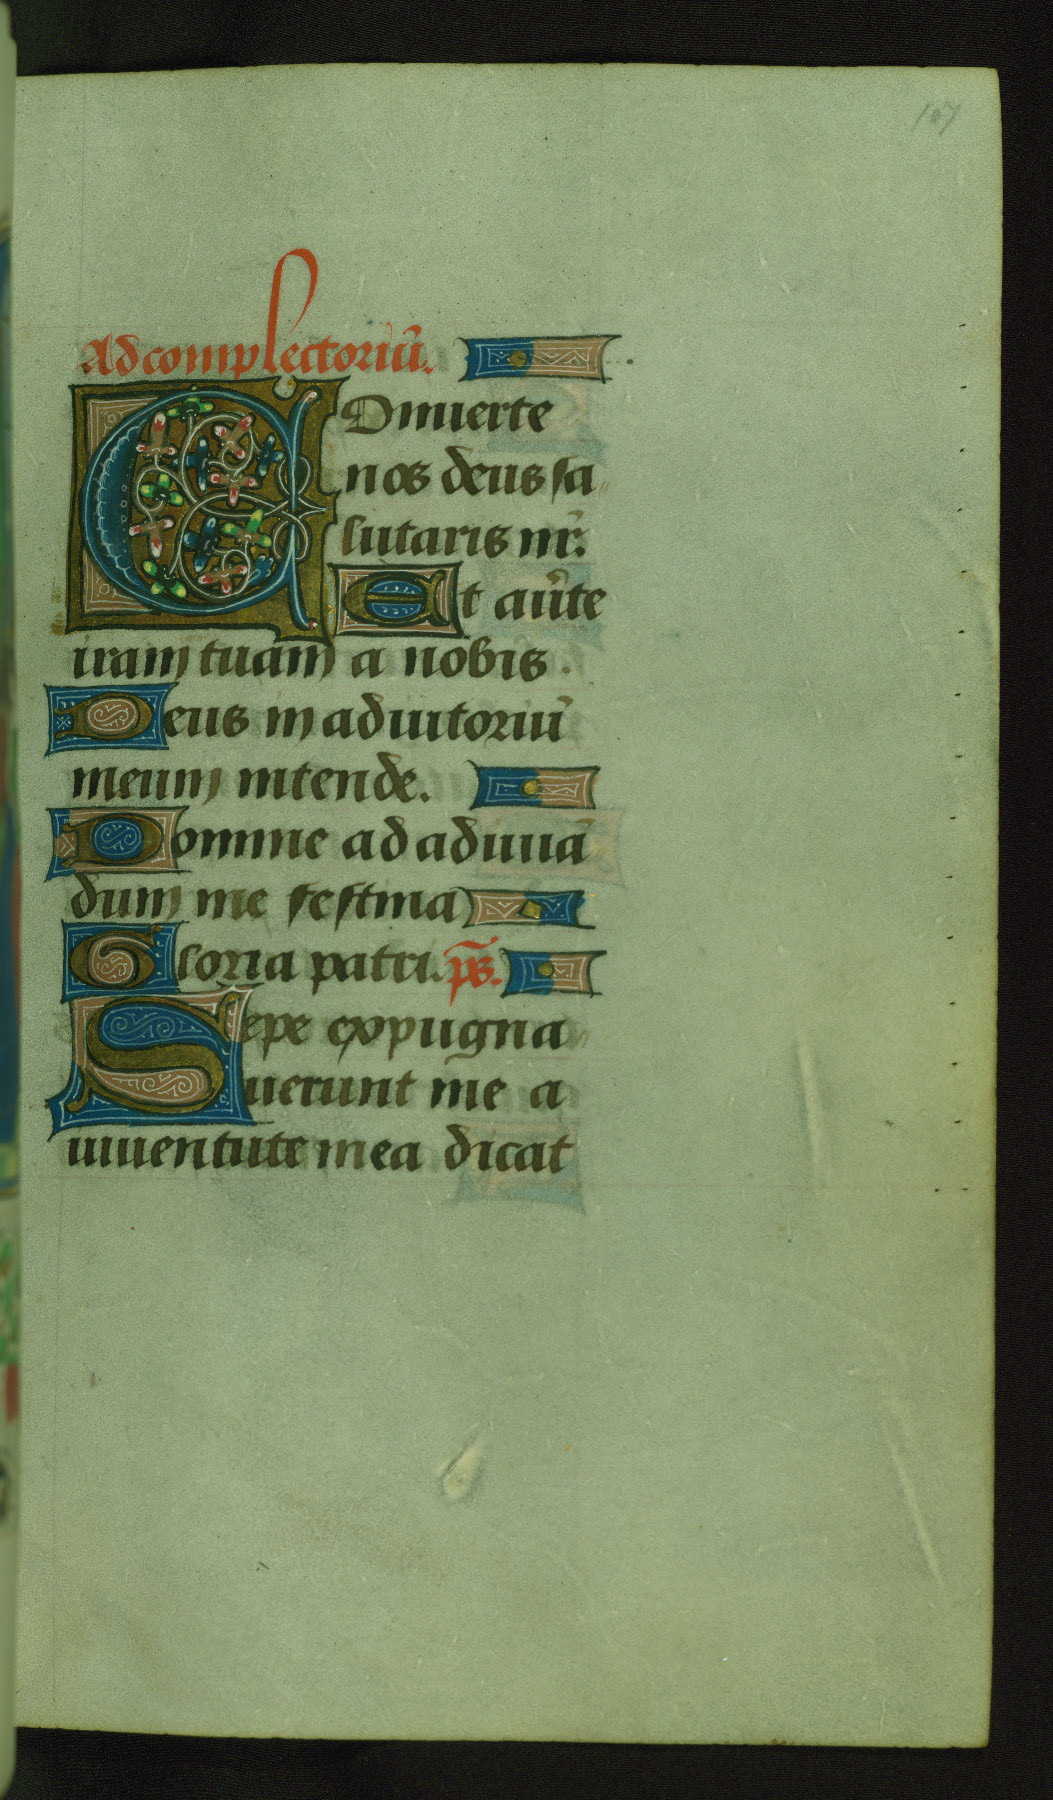 107
Ad complectoriū.
COnuerte
nos deus sa
lutaris nr̄.
Et aūte
iram tuam a nobis.
Deus in adiutoriū
meum intende.
Domine ad adiuuā
dum me festina
Gloria patri. ps̄.
Sepe expugna
uerunt me a
iuuentute mea dicat